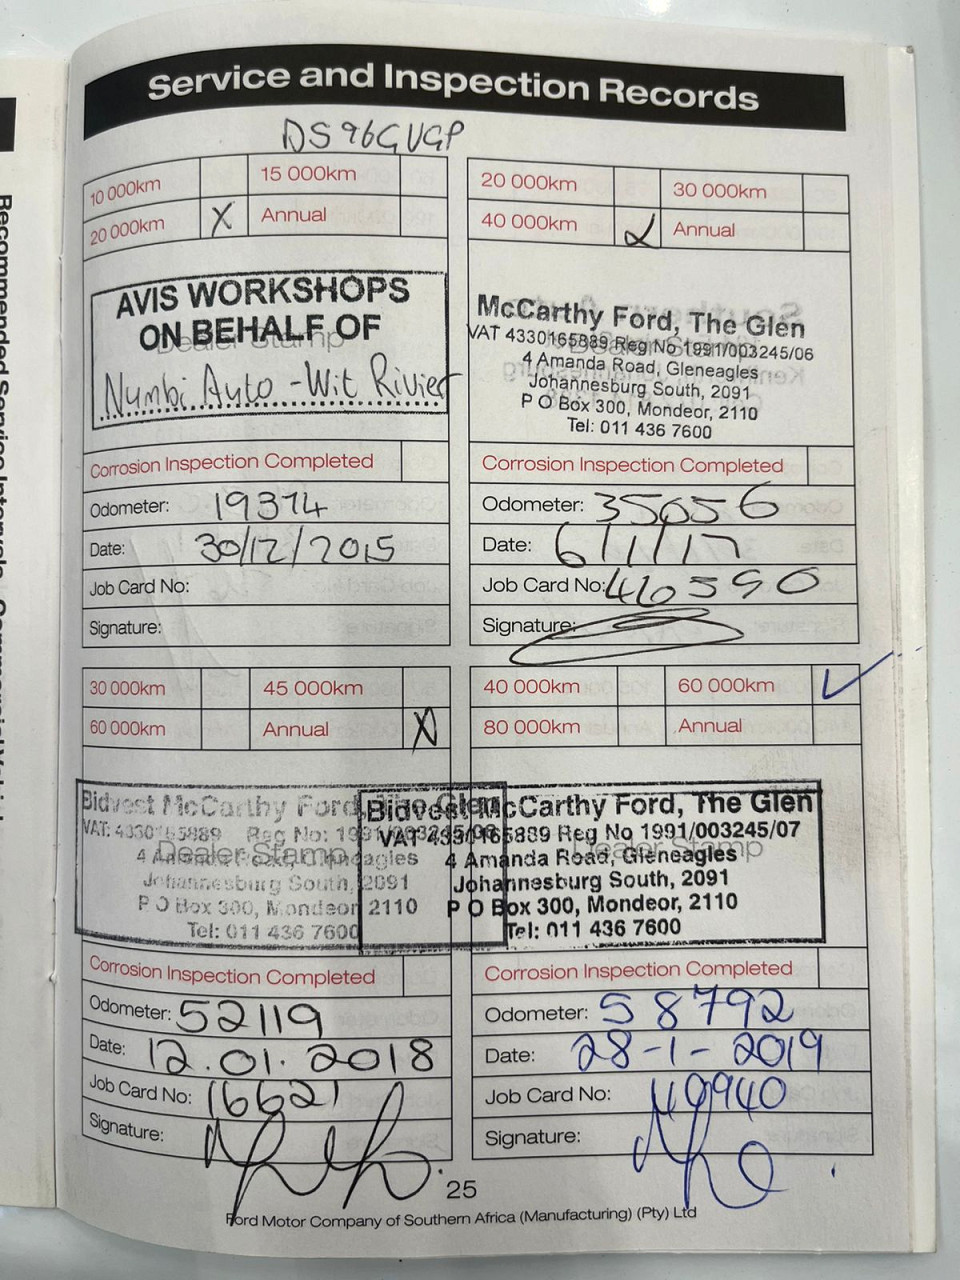 Service and Inspection Records
DS96GVGP
10 000km 15 000km
20 000km X Annual
AVIS WORKSHOPS
ON BEHALF OF
Dealer Stamp
Numbi Auto - Wit Rivier
Corrosion Inspection Completed
Odometer: 19374
Date: 30/12/2015
Job Card No:
Signature:
20 000km 30 000km
40 000km Annual
McCarthy Ford, The Glen
VAT 4330165889 Reg No 1991/003245/06
4 Amanda Road, Gleneagles
Johannesburg South, 2091
P O Box 300, Mondeor, 2110
Tel: 011 436 7600
Corrosion Inspection Completed
Odometer: 35656
Date: 6/1/17
Job Card No: 46590
Signature:
30 000km 45 000km
60 000km Annual X
Bidvest McCarthy Ford, The Glen
VAT: 4330165889 Reg No: 1991/003245/06
Dealer Stamp
4 Amanda Road, Gleneagles
Johannesburg South, 2091
P O Box 300, Mondeor 2110
Tel: 011 436 7600
Corrosion Inspection Completed
Odometer: 52119
Date: 12.01.2018
Job Card No: 16621
Signature:
40 000km 60 000km ✓
80 000km Annual
Bidvest McCarthy Ford, The Glen
VAT 4330165889 Reg No 1991/003245/07
Dealer Stamp
4 Amanda Road, Gleneagles
Johannesburg South, 2091
P O Box 300, Mondeor, 2110
Tel: 011 436 7600
Corrosion Inspection Completed
Odometer: 58792
Date: 28-1-2019
Job Card No: 49940
Signature:
25
Ford Motor Company of Southern Africa (Manufacturing) (Pty) Ltd